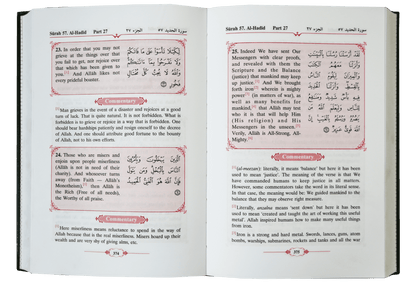 Sûrah 57. Al-Hadîd Part 27 الجزء ٢٧ سورة الحديد ٥٧
23. In order that you may not
grieve at the things over that
you fail to get, nor rejoice over
that which has been given to
you. And Allah likes not
every prideful boaster.
لِكَيْلَا تَأْسَوْا عَلَى مَا فَاتَكُمْ
وَلَا تَفْرَحُوا بِمَا آتَاكُمْ
وَاللَّهُ لَا يُحِبُّ كُلَّ مُخْتَالٍ
فَخُورٍ
Commentary
Man grieves in the event of a disaster and rejoices at a good
turn of luck. That is quite natural. It is not forbidden. What is
forbidden is to grieve or rejoice in a way that is forbidden. One
should bear hardships patiently and resign oneself to the decree
of Allah. And one should attribute good fortune to the bounty
of Allah, not to his own efforts.
24. Those who are misers and
enjoin upon people miserliness
(Allah is not in need of their
charity). And whosoever turns
away (from Faith — Allah's
Monotheism), then Allah is
the Rich (Free of all needs),
the Worthy of all praise.
الَّذِينَ يَبْخَلُونَ وَيَأْمُرُونَ
النَّاسَ بِالْبُخْلِ وَمَن يَتَوَلَّ
فَإِنَّ اللَّهَ هُوَ الْغَنِيُّ الْحَمِيدُ
Commentary
Here miserliness means reluctance to spend in the way of
Allah because that is the real miserliness. Misers hoard up their
wealth and are very shy of giving alms, etc.
374
Sûrah 57. Al-Hadîd Part 27 الجزء ٢٧ سورة الحديد ٥٧
25. Indeed We have sent Our
Messengers with clear proofs,
and revealed with them the
Scripture and the Balance
(justice) that mankind may keep
up justice. And We brought
forth iron wherein is mighty
power (in matters of war), as
well as many benefits for
mankind, that Allah may test
who it is that will help Him
(His religion) and His
Messengers in the unseen.
Verily, Allah is All-Strong, All-
Mighty.
لَقَدْ أَرْسَلْنَا رُسُلَنَا بِالْبَيِّنَاتِ
Commentary
[al-meezan]: literally, it means 'balance' but here it has been
used to mean 'justice'. The meaning of the verse is that We
have commanded humans to keep justice in all matters.
However, some commentators take the word in its literal sense.
In that case, the meaning would be: We guided mankind to the
balance that they may observe right measure.
Literally, anzalna means 'sent down' but here it has been
used to mean 'created and taught the art of working this useful
metal'. Allah inspired humans how to make many useful things
from iron.
Iron is a strong and hard metal. Swords, lances, guns, atom
bombs, warships, submarines, rockets and tanks and all the war
375